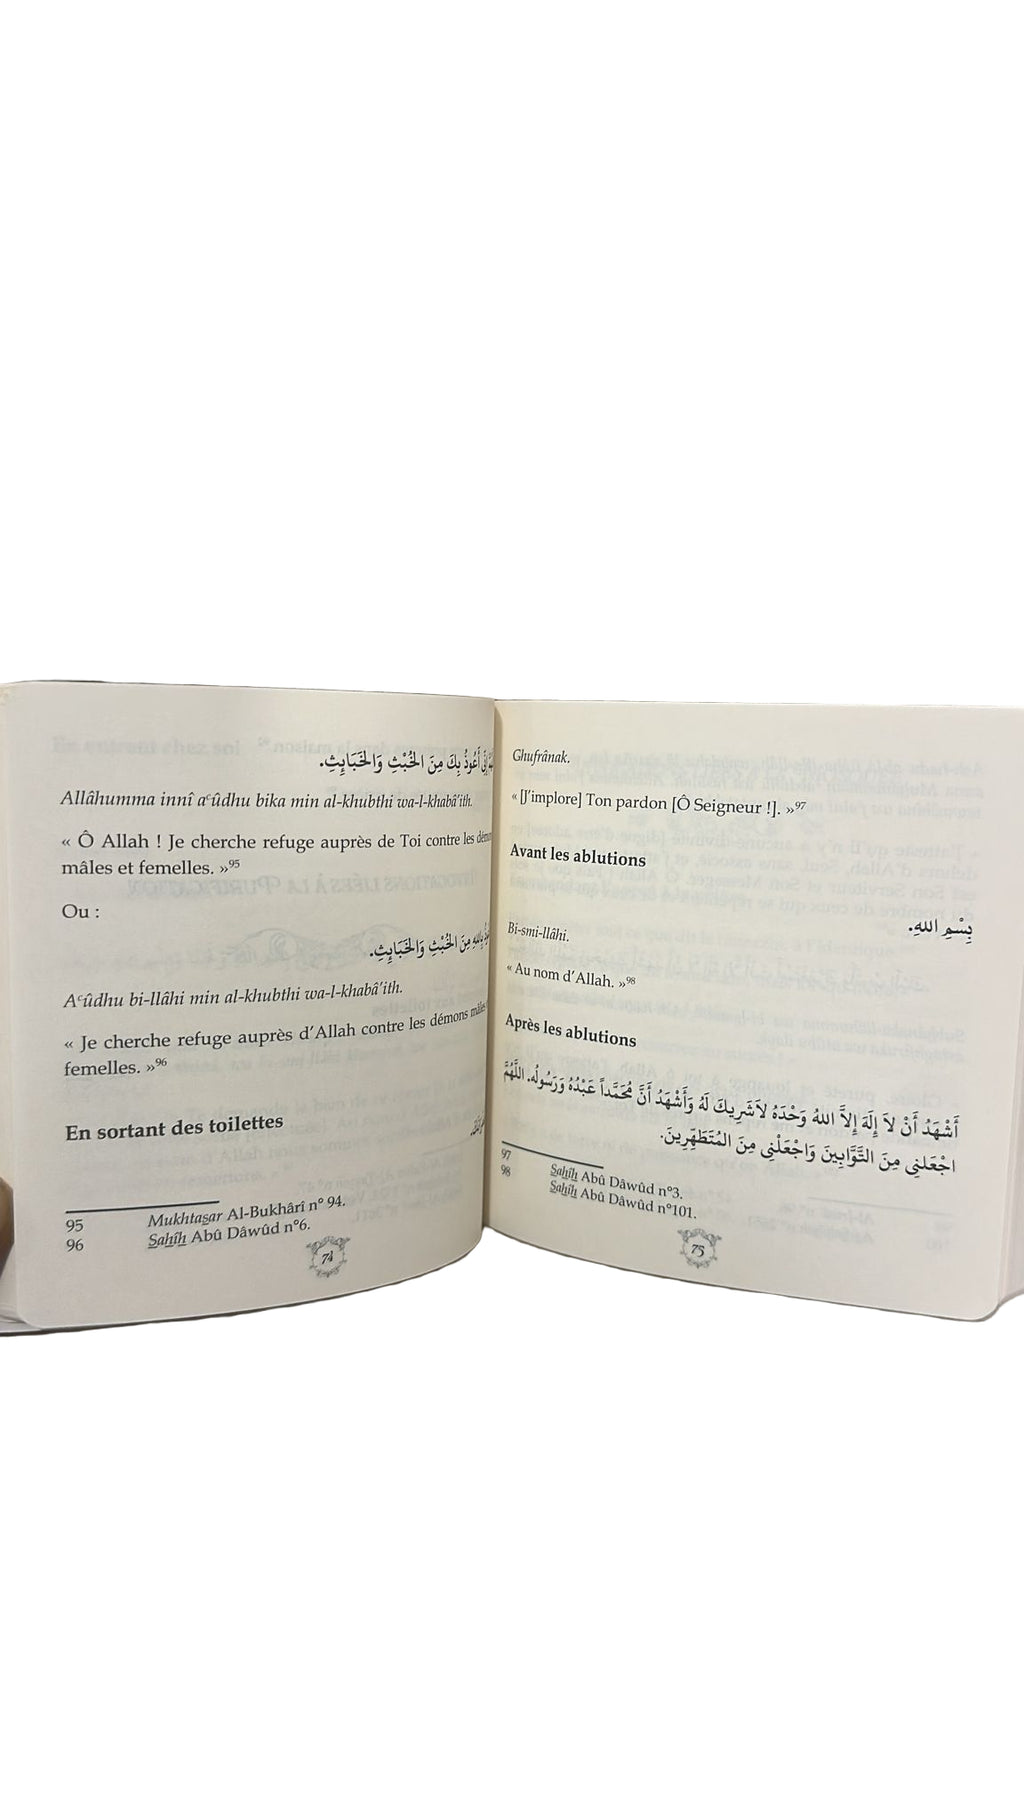 إِنِّي أَعُوذُ بِكَ مِنَ الخُبْثِ وَالخَبَائِثِ.
Allâhumma innî aᶜûdhu bika min al-khubthi wa-l-khabâ’ith.
« Ô Allah ! Je cherche refuge auprès de Toi contre les
mâles et femelles. »95
Ou :
بِاللهِ مِنَ الخُبْثِ وَالخَبَائِثِ.
Aᶜûdhu bi-llâhi min al-khubthi wa-l-khabâ’ith.
« Je cherche refuge auprès d’Allah contre les démons mâles
femelles. »96
En sortant des toilettes
95 Mukhtasar Al-Bukhârî n° 94.
96 Sahîh Abû Dâwûd n°6.
74
Ghufrânak.
« [J’implore] Ton pardon [Ô Seigneur !]. »97
Avant les ablutions
بِسْمِ اللهِ.
Bi-smi-llâhi.
« Au nom d’Allah. »98
Après les ablutions
أَشْهَدُ أَنْ لاَ إِلَهَ إِلاَّ اللهُ وَحْدَهُ لاَشَرِيكَ لَهُ وَأَشْهَدُ أَنَّ مُحَمَّداً عَبْدُهُ وَرَسُولُه. اللَّهُمَّ
اجْعَلنِي مِنَ التَّوَّابِينَ وَاجْعَلْنِي مِنَ المُتَطَهِّرِينَ.
97 Sahîh Abû Dâwûd n°3.
98 Sahîh Abû Dâwûd n°101.
75